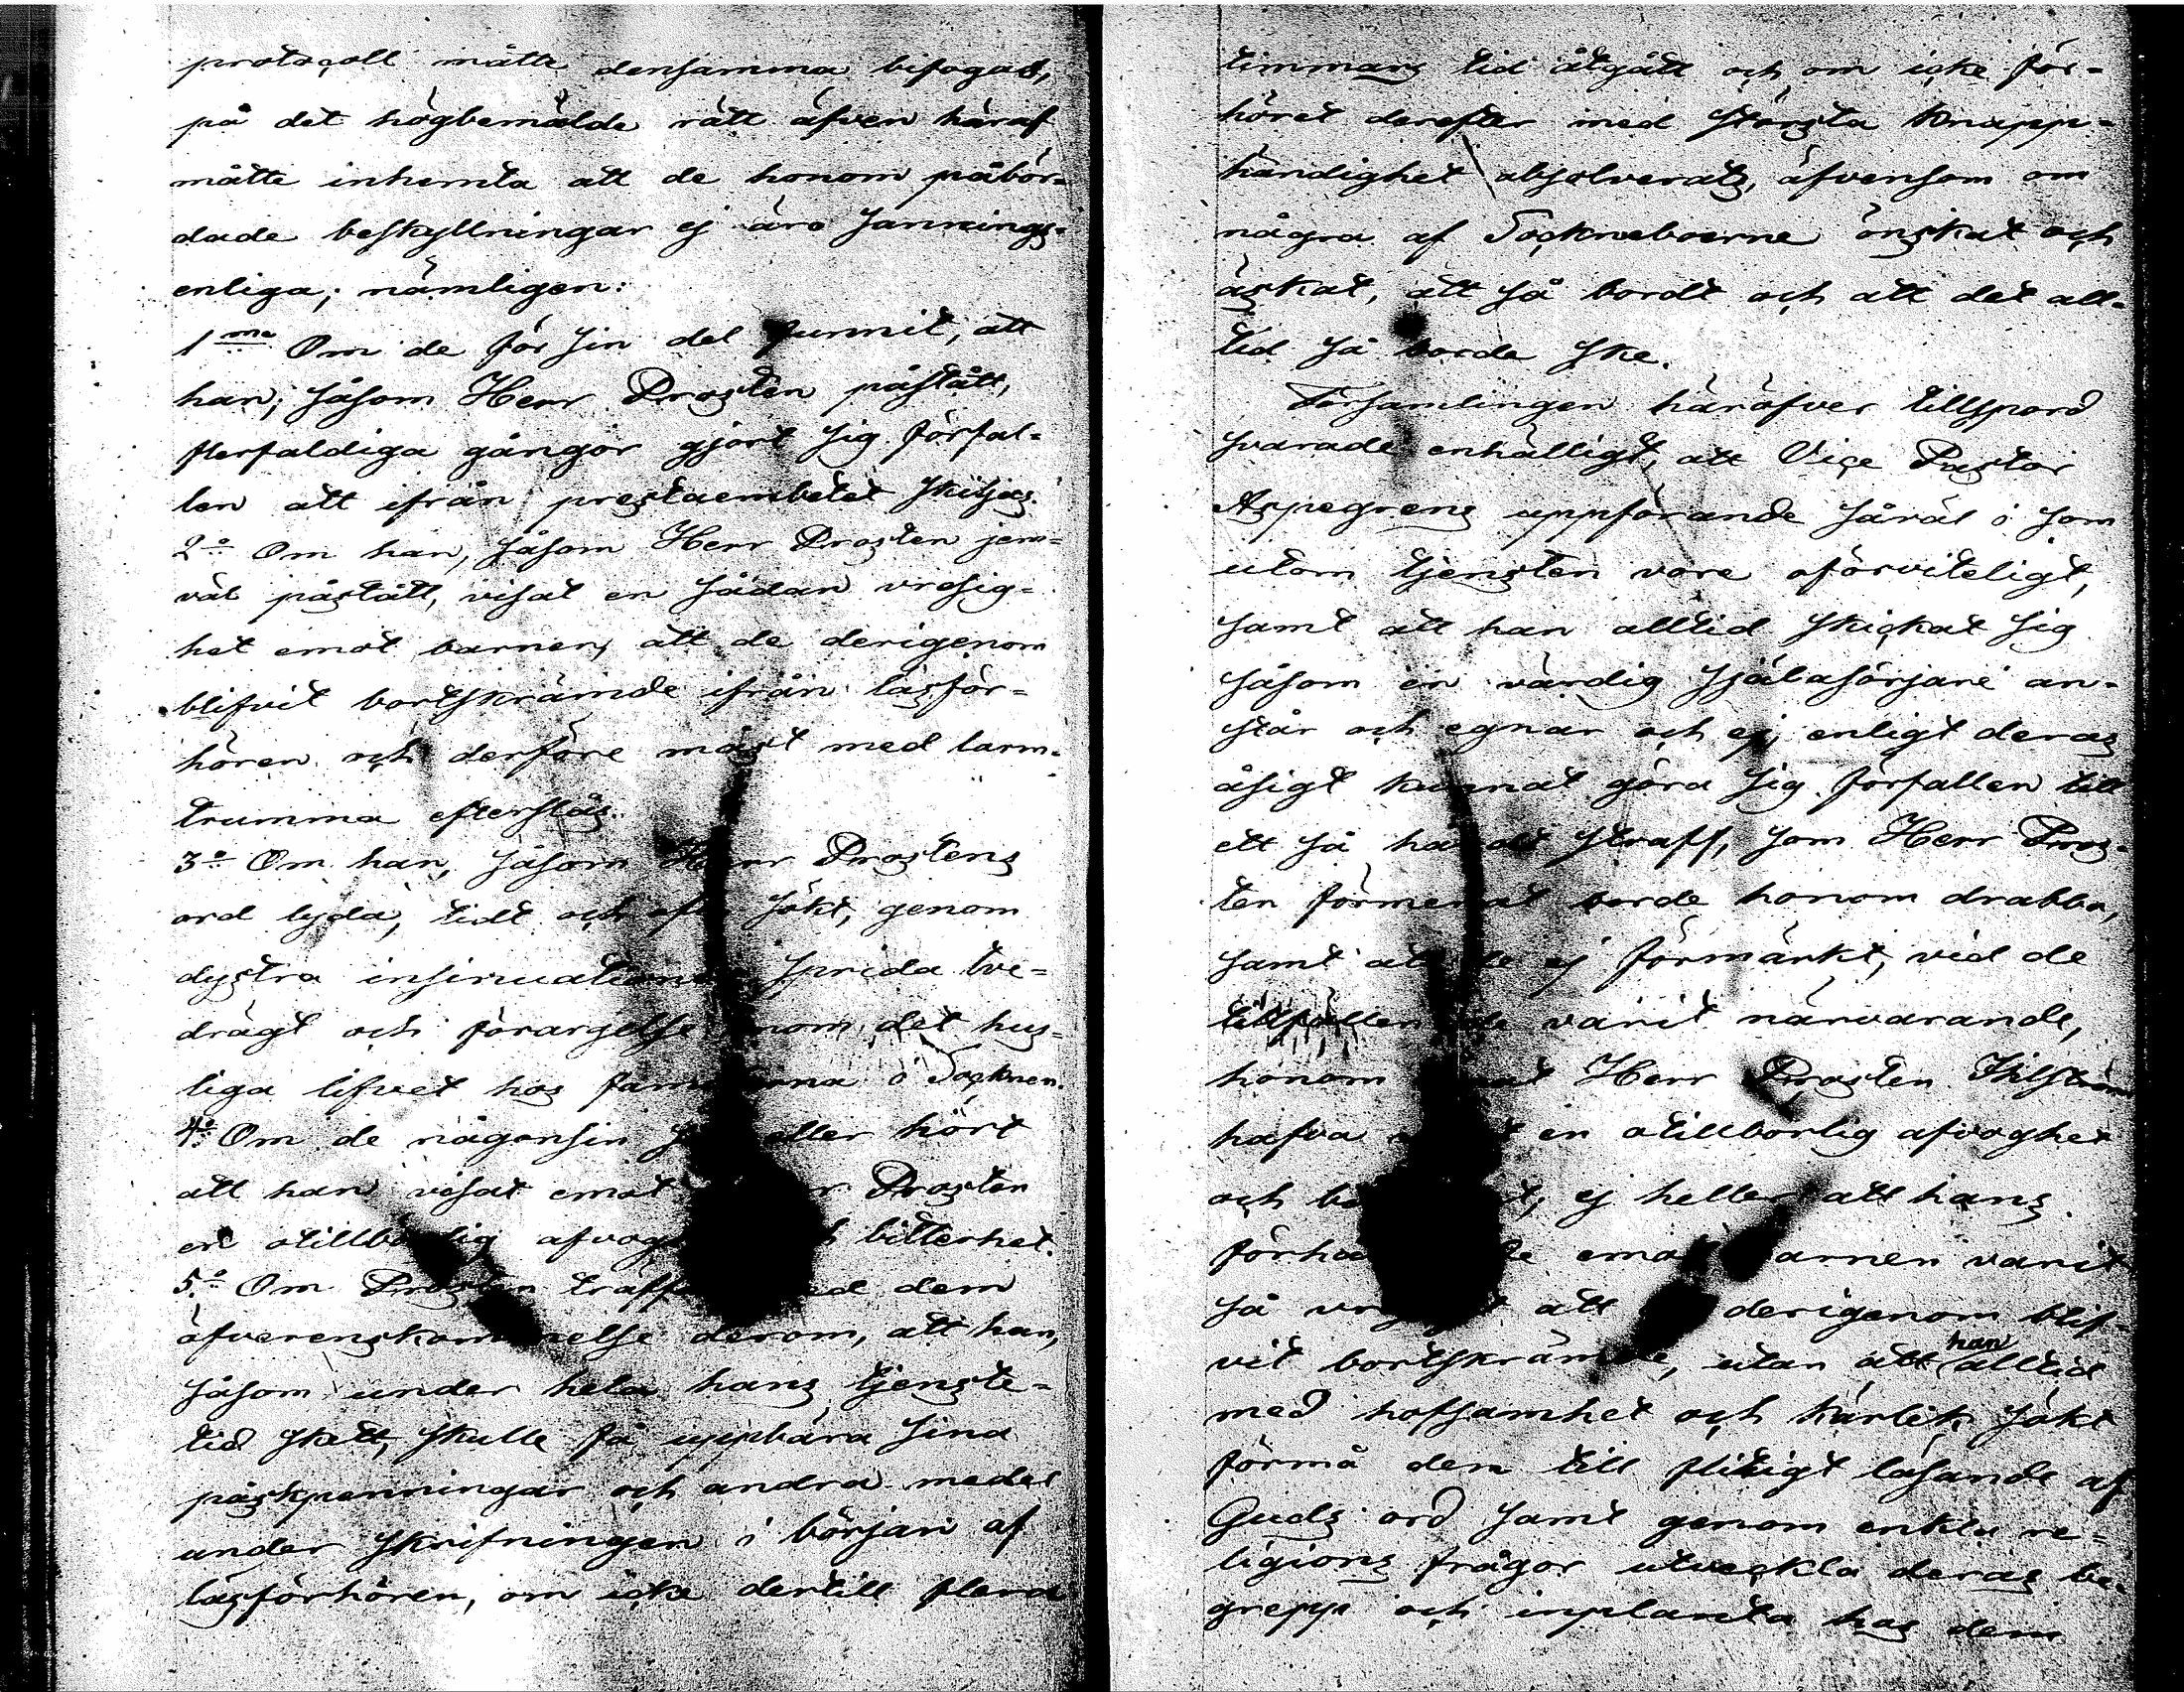 protocoll måtte densamma bifogas,
på det högbemälde rätt äfven häraf
måtte inhemta att de honom påbör-
dade beskyllningar ej äro sannings-
enliga; nämligen:
1mo Om de för sin del funnit, att
han, såsom Herr Prosten påstått,
flerfaldiga gångor gjort sig förfal-
len att ifrån prestaembetet skiljas.
2o Om han, såsom Herr Prosten jem-
väl påstått, visat en sådan vresig-
het emot barnen, att de derigenom
blifvit bortskrämde ifrån läsför-
hören och derföre måst med larm-
trumma efterslås.
3o Om han, såsom Herr Prostens
ord lyda, tidt och ofta sökt, genom
dystra insinuationer sprida tve-
drägt och förargelse inom det hus-
liga lifvet hos familjerna i Socknen.
4o Om de någonsin eller hört
att han visat emot Herr Prosten
en otillbörlig afvoghet och bitterhet.
5o Om Prosten träffat med dem
öfverenskommelse derom, att han,
såsom under hela hans tjenste-
tid skett, skulle få uppbära sina
påskpenningar och andra medel
under skrifningen i början af
läsförhören, om icke dertill flera
timmars tid åtgått och om icke för-
höret derefter med största knapp-
händighet absolverats, äfvensom om
några af Sockneboerne önskat och
äskat, att så bordt och att det all-
tid så borde ske.
Församlingen häröfver tillspord
svarade enhälligt, att Vice Pastor
Aspegrens uppförande såväl i som
utom tjensten vore oförviteligt,
samt att han alltid skickat sig
såsom en värdig själasörjare an-
står och egnar och ej, enligt deras
åsigt kunnat göra sig förfallen till
ett så hårdt straff, som Herr Pros-
ten förmenat borde honom drabba,
samt att de ej förmärkt, vid de
tillfällen de varit närvarande,
honom emot Herr Prosten
hafva en otillborlig afvoghet
och bitterhet, ej heller att hans
förhållande emot barnen varit
så vresigt att de derigenom blif-
vit bortskrämde, utan att han alltid
med hofsamhet och kärlek sökt
förmå dem till flitigt läsande af
Guds ord samt genom enkla re-
ligions frågor utveckla deras be-
grepp och inplanta hos dem